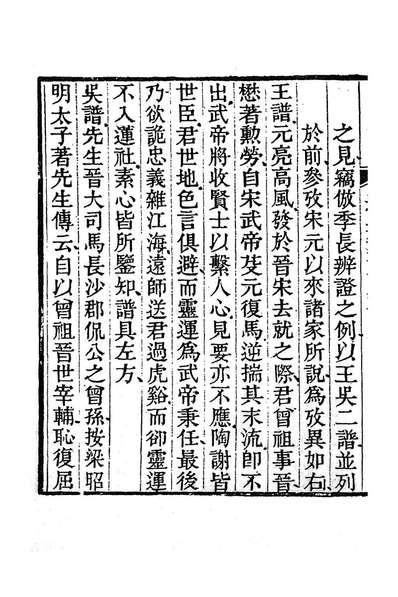 之見竊倣季長辨證之例以王吳二譜並列
於前參攷宋元以來諸家所說爲攷異如右
王譜元亮高風發於晉宋去就之際君曾祖事晉
懋著勲勞自宋武帝芟元復馬逆揣其末流卽不
出武帝將收賢士以繫人心見要亦不應陶謝皆
世臣君世地色言俱避而靈運爲武帝秉任最後
乃欲詭忠義雜江海遠師送君過虎谿而卻靈運
不入蓮社素心皆所鑒知譜具左方
吳譜先生晉大司馬長沙郡侃公之曾孫按梁昭
明太子著先生傳云自以曾祖晉世宰輔恥復屈